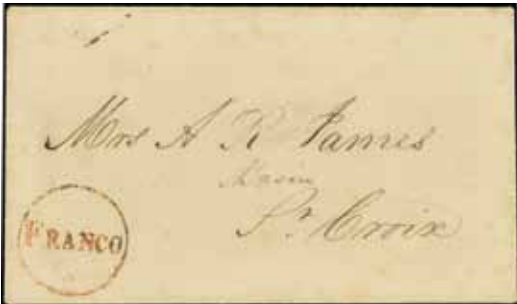 Mrs A R James
St Croix
FRANCO